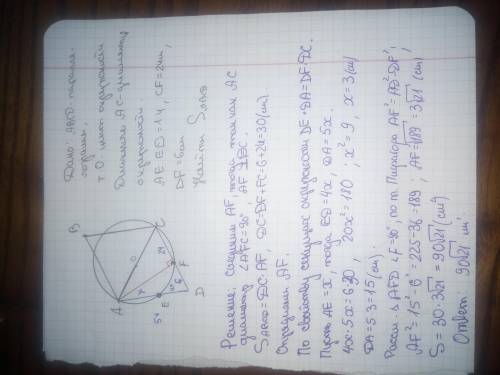 Дано: ABCD-паралле-
лограмм,
т. О. центр окружности
Диагональ AC-диаметр
окружности
AE:ED=1:4, CF=24см,
DF=6см
Найти S ABCD
A
B
C
D
E
F
O
24
6
Решение: Соединим AF, тогда так как AC
диаметр ∠AFC=90°, AF⊥DC.
S ABCD=DC·AF, DC=DF+FC=6+24=30(см).
AF.
По свойству секущих окружности DE·DA=DF·DC.
Пусть AE=x, тогда ED=4x, DA=5x.
4x·5x=6·30, 20x²=180, x²=9, x=3(см)
DA=5·3=15(см).
Рассм. ΔAFD ∠F=90°, по т. Пифагора AF²=AD²-DF²;
AF²=15²-6²=225-36=189, AF=√189=3√21(см)
S=30·3√21=90√21(см²)
Ответ: 90√21 см².